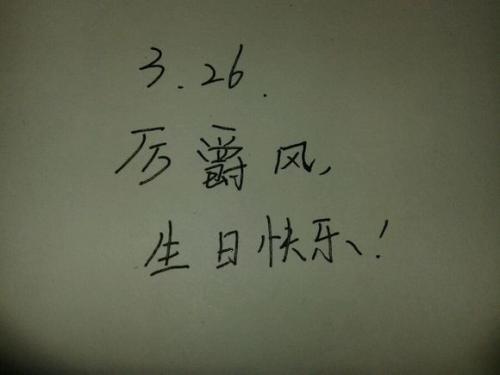 3.26.
厉爵风,
生日快乐!